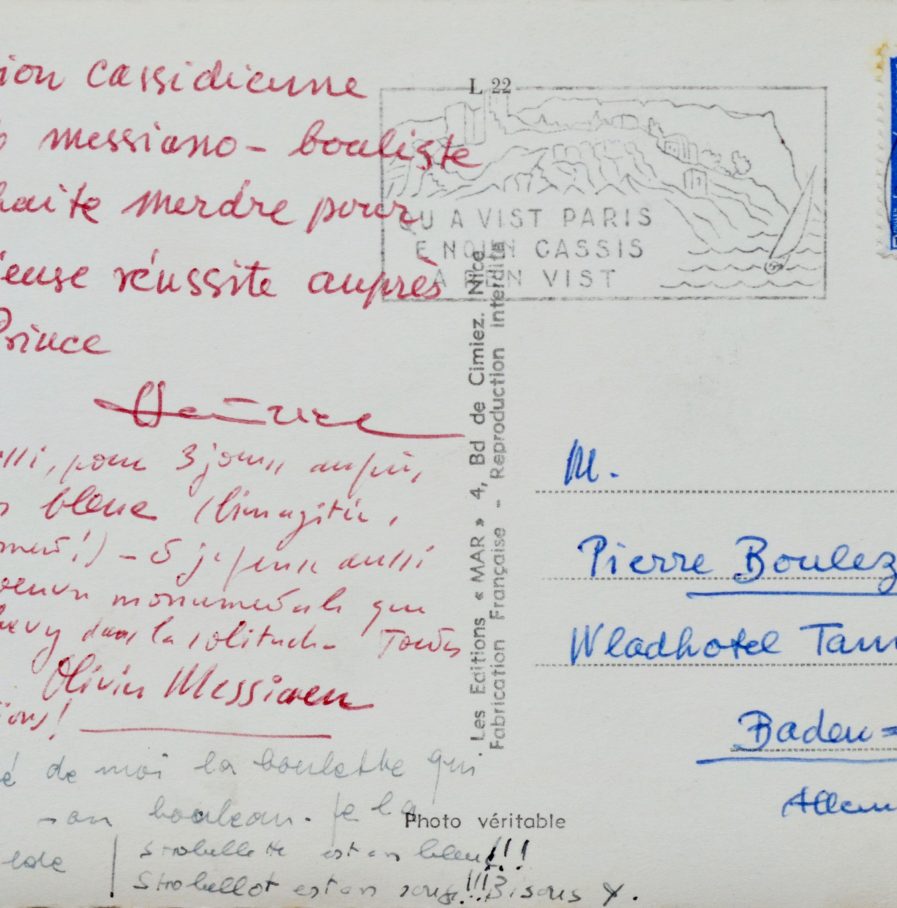 ion Cassidienne
messiano-bouliste
haite merdre pour
ieuse réussite auprès
Prince
pour 3 jours
bleue
aussi
monumentale que
dans la solitude. Toutes
Olivier Messiaen
ions!
é de moi la boulette qui
bouleau. je la
Strobellette est en bleu!!!
Strobellot est en rouge!!! Bisous
L 22
QU A VIST PARIS
E NOUN CASSIS
A REN VIST
Les Editions « MAR » 4, Bd de Cimiez. Nice
Fabrication Française - Reproduction interdite
Photo véritable
M.
Pierre Boulez
Wladhotel Tann
Baden=
Allem